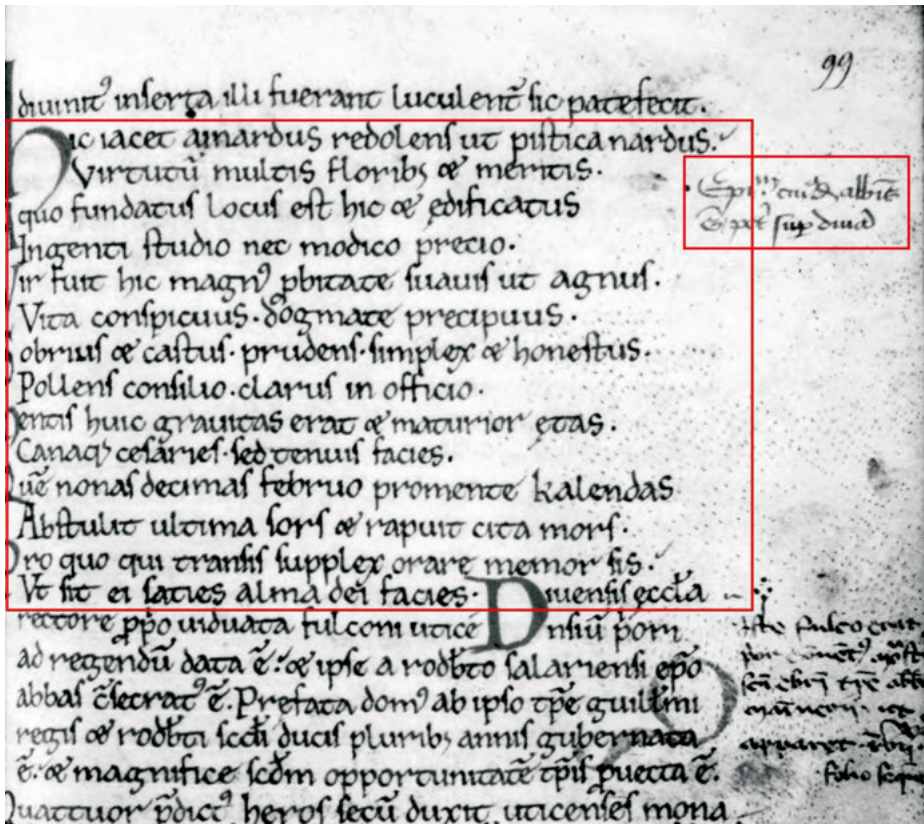 99
diuinit᾽ inserta illi fuerant luculent̄ sic patefecit.
Hic iacet ainardus redolens ut pistica nardus.
Virtutū multis floribꝫ & meritis.
A quo fundatus locus est hic & ędificatus
Ingenti studio nec modico precio.
Vir fuit hic magn᾽ ꝓbitate suauis ut agnus.
Vita conspicuus. dogmate precipuus.
Sobrius & castus. prudens. simplex & honestus.
Pollens consilio. clarus in officio.
Mentis huic grauitas erat & maturior ętas.
Canaqꝫ cesaries. sed tenuis facies.
Quē nonas decimas februo promente kalendas
Abstulit ultima sors & rapuit cita mors.
Pro quo qui transis supplex orare memor sis.
Vt sit ei saties alma dei facies. Diuensis ęccl̄a
rectore ꝓp̄o uiduata fulconi uticēnsiū p̄ori
ad regendū data ē. & ipse a rodb̄to salariensi ep̄o
abbas c̄secrat᾽ ē. Prefata dom᾽ ab ipso tp̄e guill̄mi
regis & rodb̄ti sc̄di ducis pluribꝫ annis gubernata
ē. & magnifice sc̄dm opportunitatē tp̄is ꝓuecta ē.
Quattuor p̄dict᾽ heros secū duxit uticenses mona
sup diuā
Iste fulco erat
folio seque